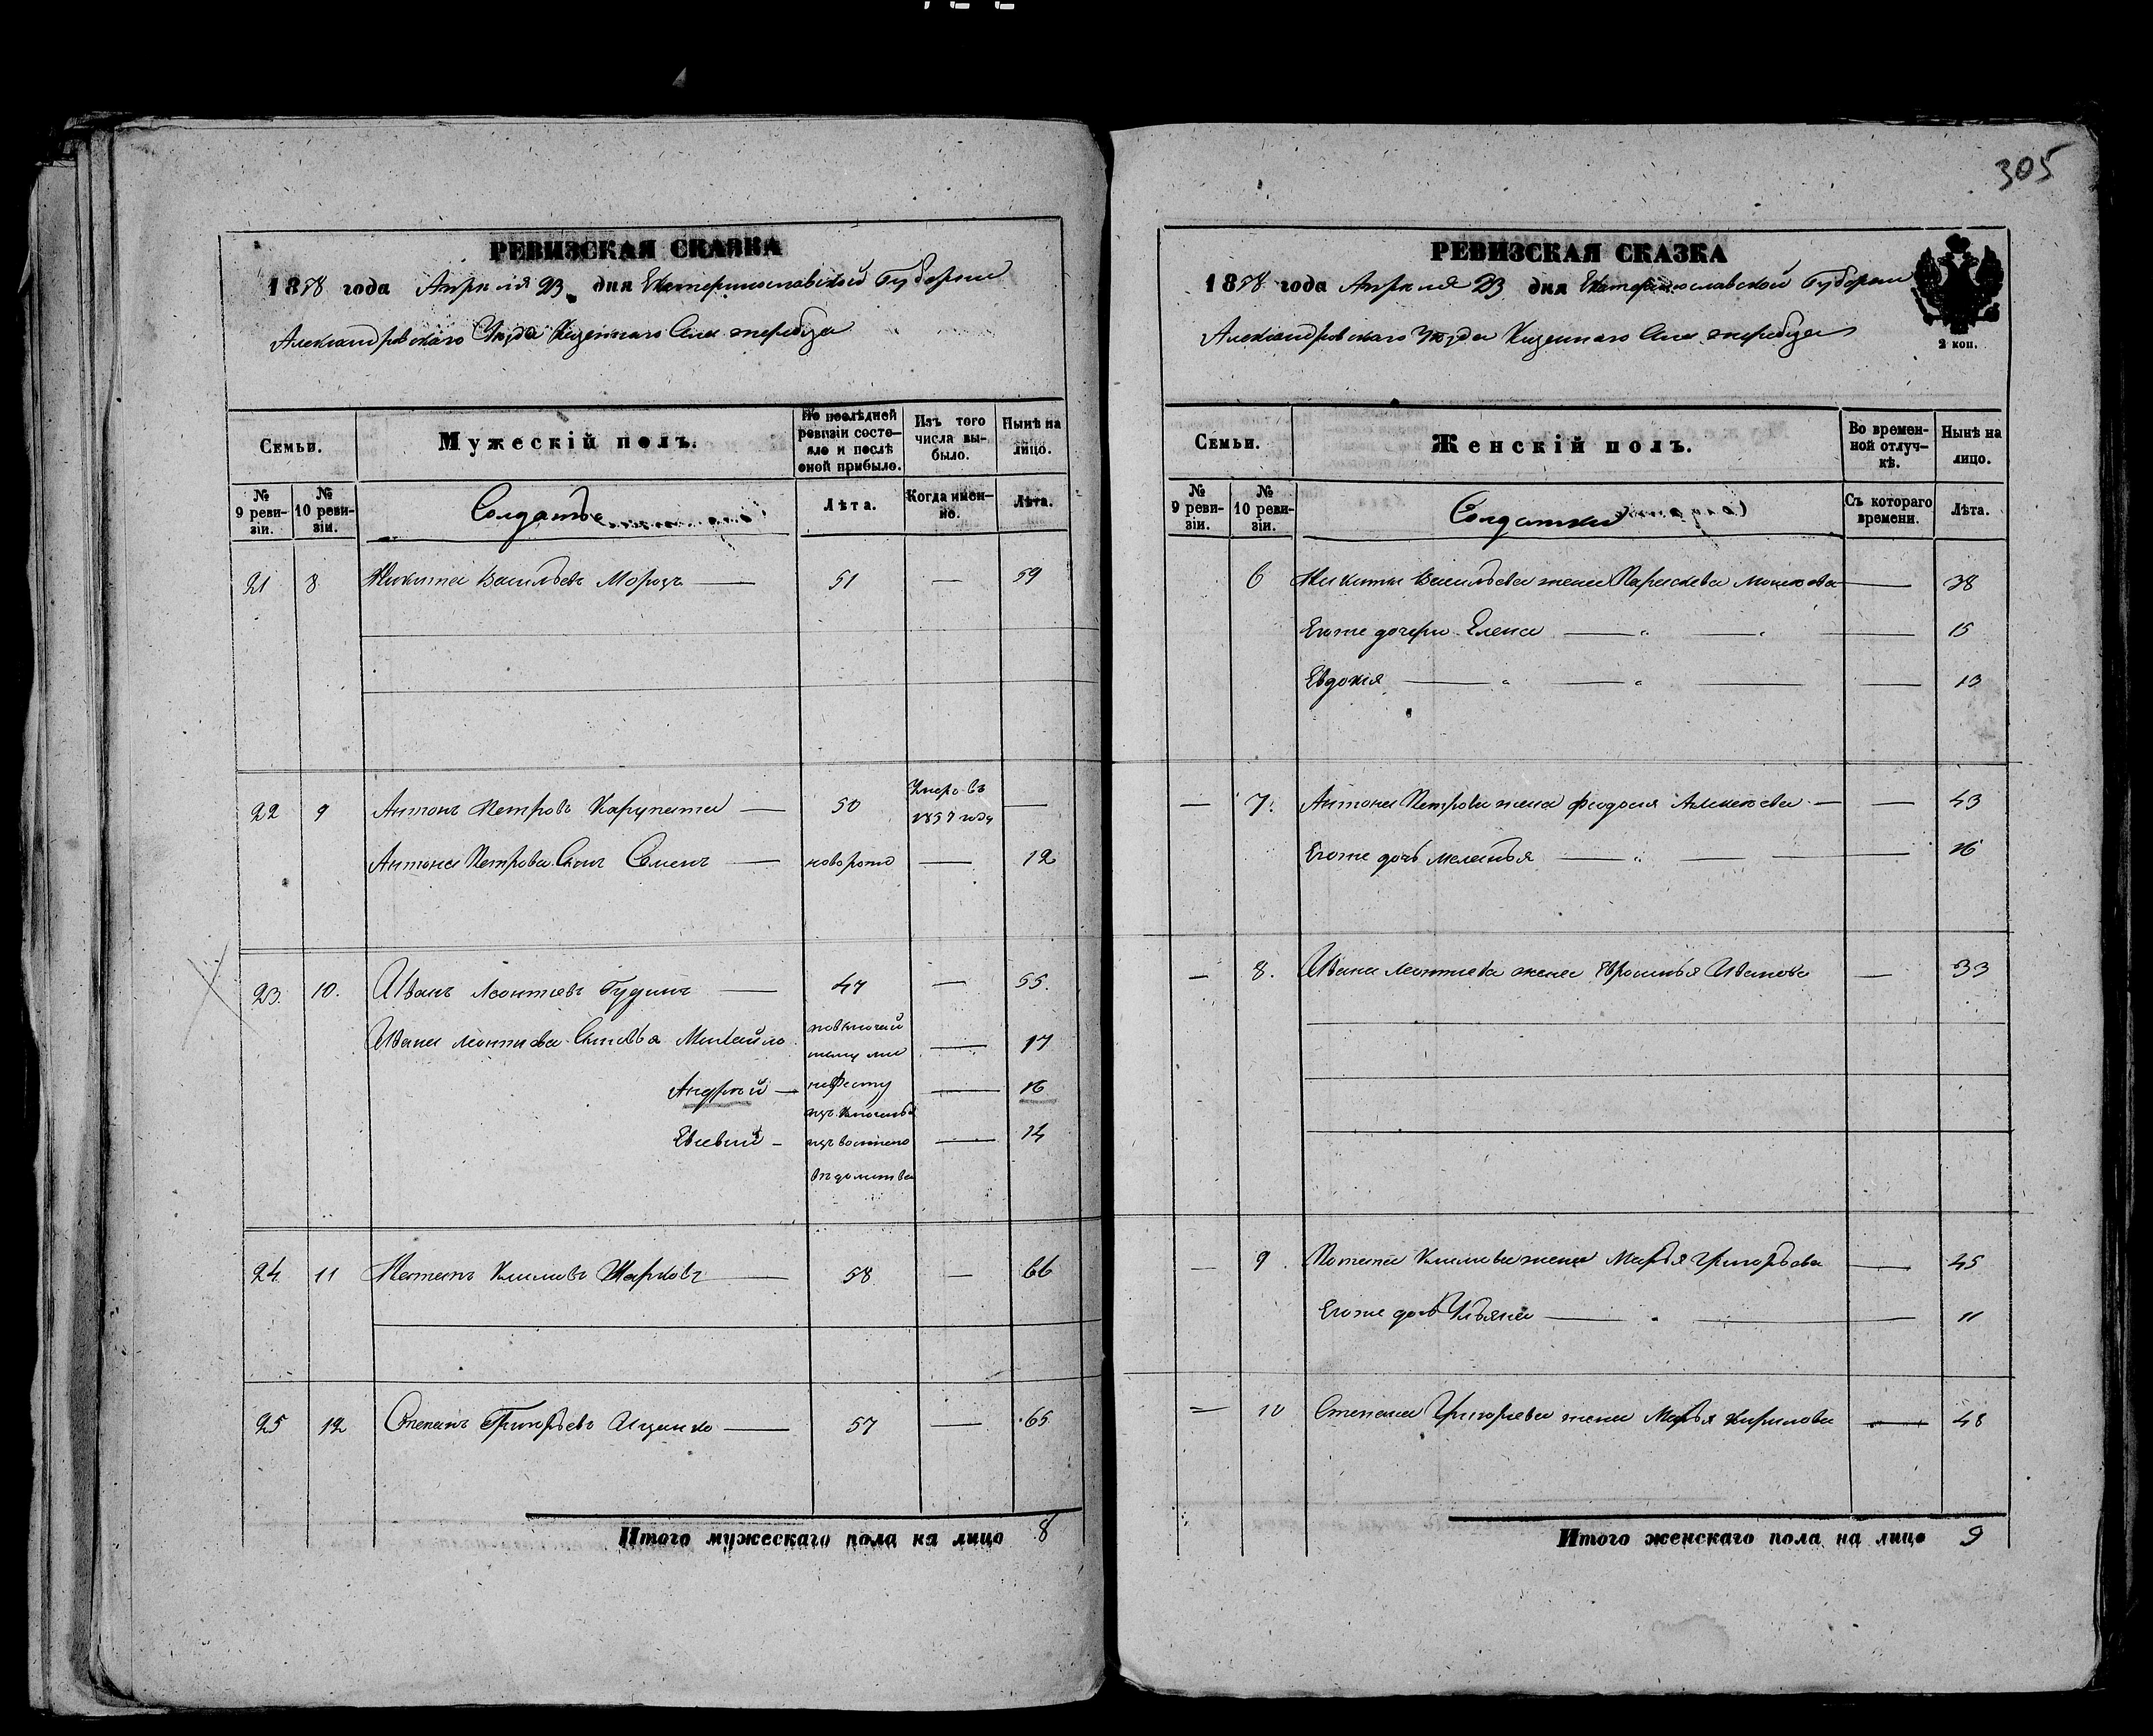 305
РЕВИЗСКАЯ СКАЗКА
1858 года Апреля 23 дня Екатеринославской Губернии
Александровскаго Уезда Казеннаго Села Жеребца
Семьи.
Мужескій полъ.
По послѣдней ревизіи состояло и послѣ оной прибыло.
Изъ того числа выбыло.
Нынѣ на лицо.
№ 9 ревизіи.
№ 10 ревизіи.
Солдатъ
Лѣта.
Когда именно.
Лѣта.
21 8 Никита Васильевъ Морозъ — 51 — 59
22 9 Антонъ Петровъ Карупата — 50 Умеръ въ 1857 году —
Антона Петрова Сынъ Семенъ — новорож — 12
23. 10. Иванъ Леонтіевъ Гудинъ — 47 — 55.
Ивана Леонтіева Сыновья Михайло — 17
Андрей — — 16
Евсевий — — 14
манифесту
ведомства
24. 11 Потапъ Климовъ Шарковъ — 58 — 66
25 12 Степанъ Григорьевъ Ищенко — 57 — 65
Итого мужескаго пола на лицо 8
РЕВИЗСКАЯ СКАЗКА
1858 года Апреля 23 дня Екатеринославской Губернии
Александровскаго Уезда Казеннаго Села Жеребца
2 коп.
Семьи.
Женскій полъ.
Во временной отлучкѣ.
Нынѣ на лицо.
№ 9 ревизіи.
№ 10 ревизіи.
Солдатки
Съ котораго времени.
Лѣта.
6 Никиты Васильева жена Параскева — 38
Егоже дочери Елена — " — " — 15
Евдокія — " — " — 13
— 7. Антона Петрова жена Федосія Алексеева — — 43
Егоже дочь Меланья — " — 16
— 8. Ивана Леонтиева жена Ефросинья Иванова — 33
— 9. Потапа Климова жена Марья Григорьева — 45
Егоже дочь Ульяна — " — 11
— 10 Степана Григорьева жена Марья Кирилова — 48
Итого женскаго пола на лицо 9